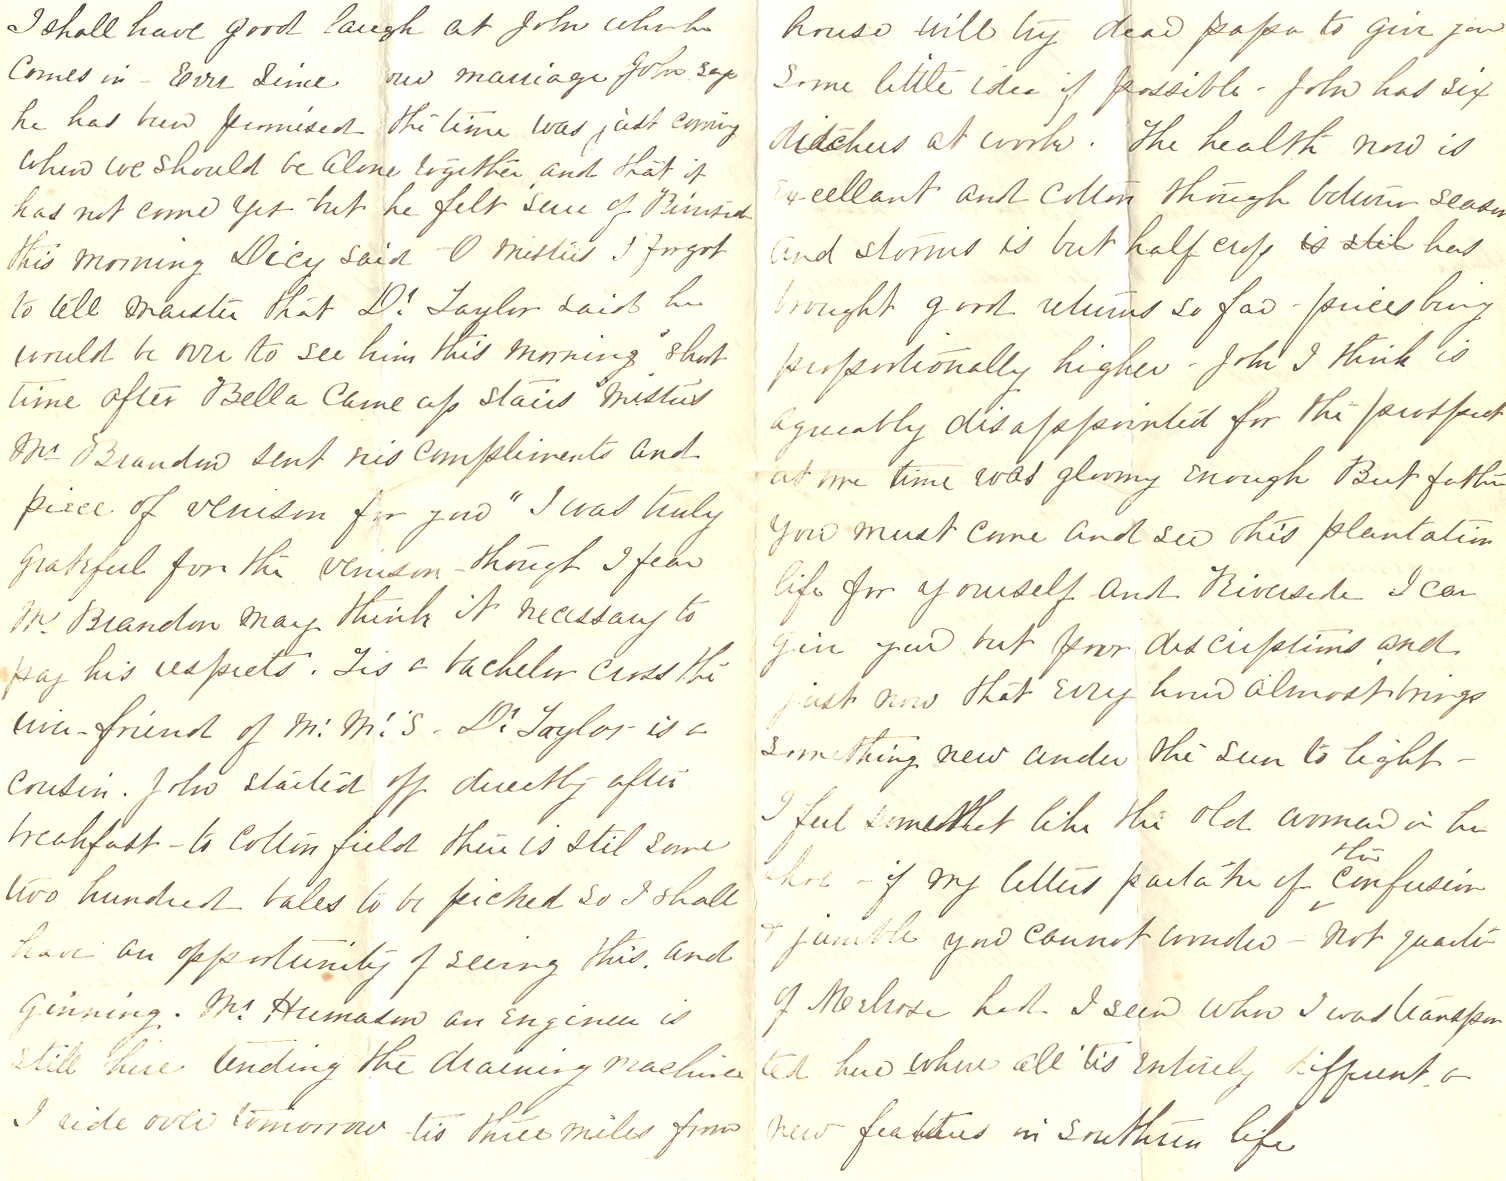 I shall have good laugh at John when he
comes in - Ever Since our marriage John says
he has been promised the time was just coming
when we should be alone together and that it
has not come yet but he felt sure of Riverside
this morning Dicy said "O mistiss I forgot
to tell maister that Dr. Taylor said he
would be over to see him this morning" short
time after Bella came up stairs "Mistiss
Mr Brandon sent his compliments and
piece of venison for you" I was truly
grateful for the venison - though I fear
Mr. Brandon may think it necessary to
pay his respects. Tis a bachelor cross the
river - friend of Mr. M.'s - Dr. Taylor is a
cousin. John started off directly after
breakfast - to cotton field there is stil some
two hundred bales to be picked so I shall
have an opportunity of seeing this. and
ginning. Mr Humason an engineer is
still here tending the draining machine
I ride over tomorrow - tis three miles from
house will try dear papa to give you
some little idea if possible - John has six
ditchers at work. The health now is
excellant and cotton though between season
and storms is but half crop is stil has
brought good returns so far - prices being
proportionally higher - John I think is
agreeably disappointed for the prospect
at one time was gloomy enough But father
you must come and see this plantation
life for yourself and Riverside I can
give you but poor descriptions and
just now that every hour almost brings
something new under the sun to light -
I feel somewhat like the old woman in her
shoe - if my letters partake of this confusion
& jumble you cannot wonder - not quarter
of Melrose had I seen when I was transpor
ted here where all 'tis entirely different a
new features in southern life